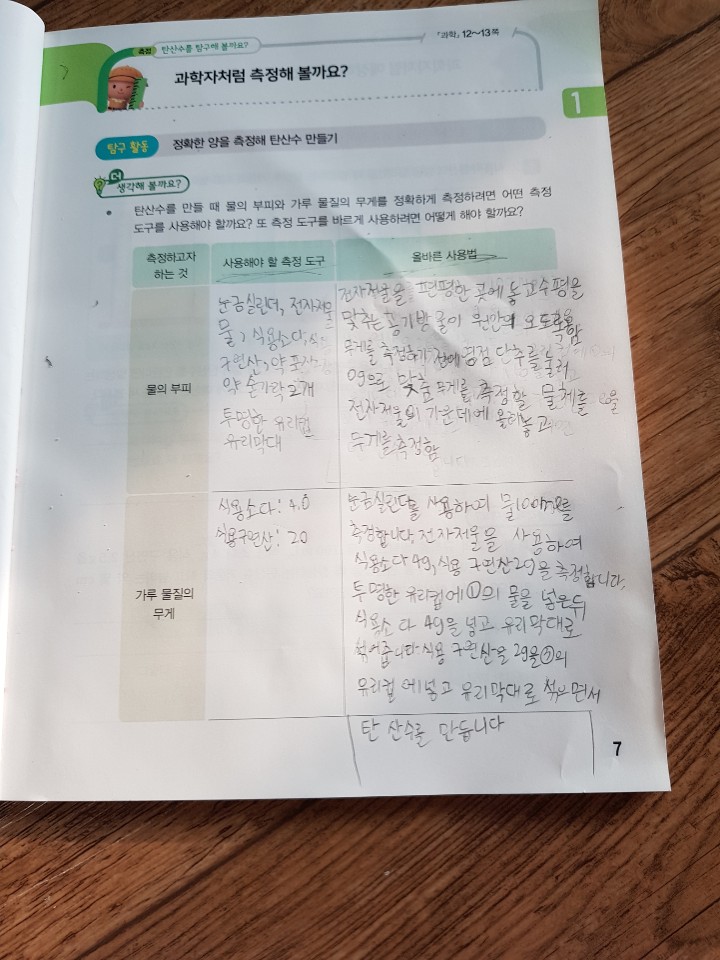 『과학』 12~13쪽
측정 탄산수를 탐구해 볼까요?
과학자처럼 측정해 볼까요?
1
탐구 활동 정확한 양을 측정해 탄산수 만들기
더
생각해 볼까요?
• 탄산수를 만들 때 물의 부피와 가루 물질의 무게를 정확하게 측정하려면 어떤 측정
도구를 사용해야 할까요? 또 측정 도구를 바르게 사용하려면 어떻게 해야 할까요?
측정하고자
하는 것
사용해야 할 측정 도구
올바른 사용법
물의 부피
눈금실린더, 전자저울
물, 식용소다,
구연산, 약포
약 숟가락 2개
투명한 유리컵
유리막대
전자저울을 편평한 곳에 놓고 수평을
맞춤 공기방울이 원안의 오도록함
무게를 측정하기 전에 영점 단추를 눌러
0g으로 맞춤 무게를 측정할 물체를
전자저울의 가운데에 올려놓고
무게를 측정함
가루 물질의
무게
식용소다: 4.0
식용구연산: 20
눈금실린더를 사용하여 물 100mL를
측정합니다, 전자저울을 사용하여
식용소다 4g, 식용 구연산 2g을 측정합니다,
투명한 유리컵에 ①의 물을 넣은뒤
식용소다 4g을 넣고 유리막대로
섞어줍니다 식용 구연산을 2g을 의
유리컵에 넣고 유리막대로 섞으면서
탄산수를 만듭니다
7